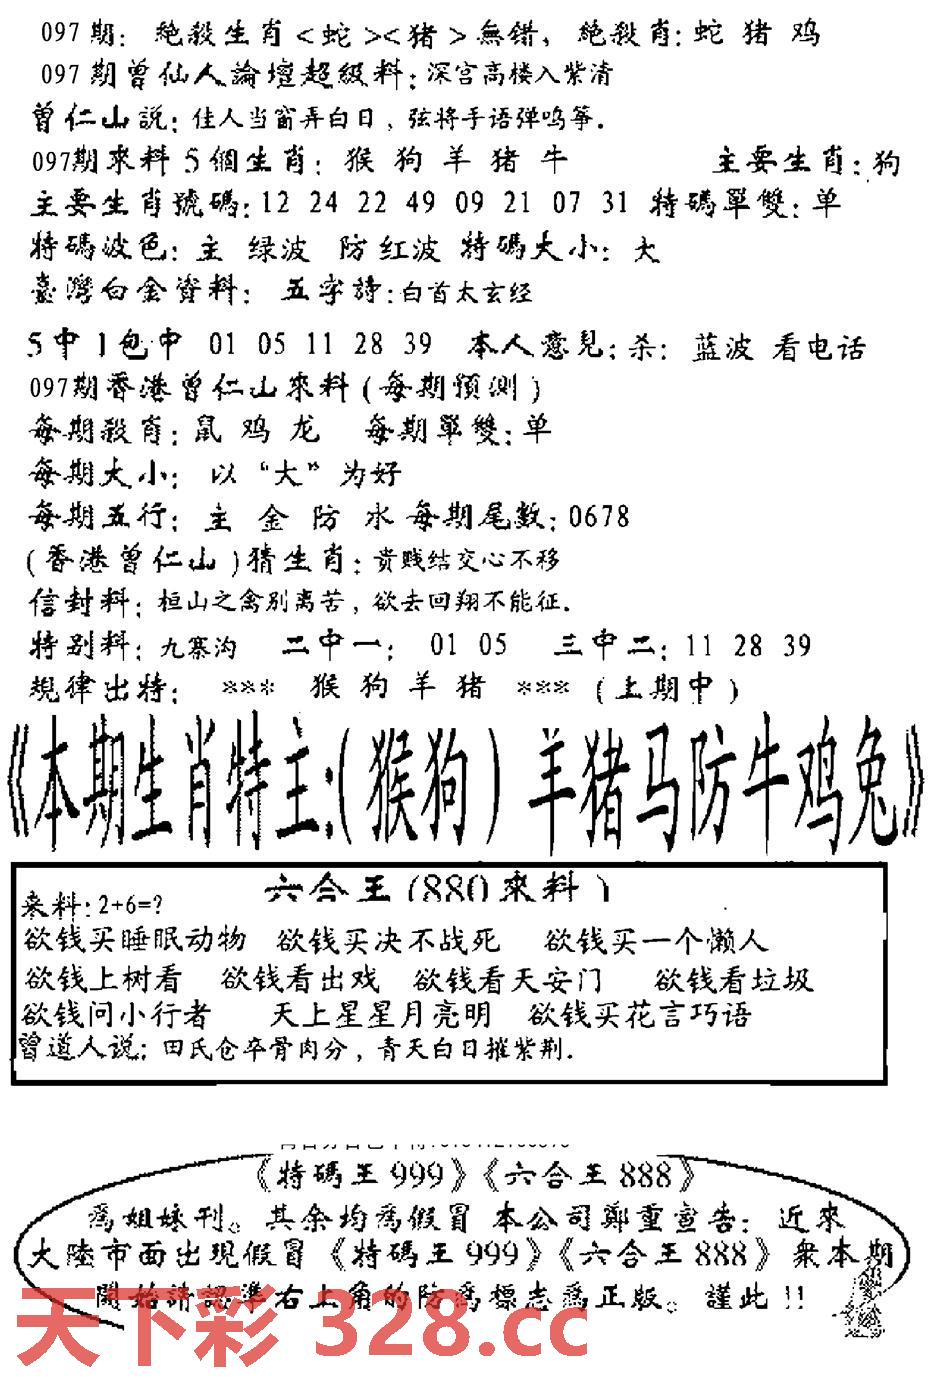 097期: 絶殺生肖<蛇><猪>無错, 絶殺肖: 蛇 猪 鸡
097期曾仙人論壇超級料: 深宫高楼入紫清
曾仁山説: 佳人当窗弄白日, 弦将手语弹鸣筝.
097期來料5個生肖: 猴 狗 羊 猪 牛 主要生肖: 狗
主要生肖號碼: 12 24 22 49 09 21 07 31 特碼單雙: 单
特碼波色: 主 绿波 防 红波 特碼大小: 大
臺灣白金資料: 五字詩: 白首太玄经
5中1包中 01 05 11 28 39 本人意見: 杀: 蓝波 看电话
097期香港曾仁山來料(每期預測)
每期殺肖: 鼠 鸡 龙 每期單雙: 单
每期大小: 以“大”为好
每期五行: 主 金 防 水 每期尾數: 0678
(香港曾仁山)猜生肖: 贵贱结交心不移
信封料: 桓山之禽别离苦, 欲去回翔不能征.
特别料: 九寨沟 二中一: 01 05 三中二: 11 28 39
規律出特: *** 猴 狗 羊 猪 *** (上期中)
《本期生肖特主:(猴狗)羊猪马防牛鸡兔》
六合王(880來料)
来料: 2+6=?
欲钱买睡眠动物 欲钱买决不战死 欲钱买一个懒人
欲钱上树看 欲钱看出戏 欲钱看天安门 欲钱看垃圾
欲钱问小行者 天上星星月亮明 欲钱买花言巧语
曾道人说: 田氏仓卒骨肉分, 青天白日摧紫荆.
《特碼王999》《六合王888》
爲姐妹刊。其余均爲假冒 本公司鄭重宣告: 近來
大陸市面出現假冒《特碼王999》《六合王888》衆本期
開始請認準右上角的防爲標志爲正版。謹此!!
天下彩 328.cc